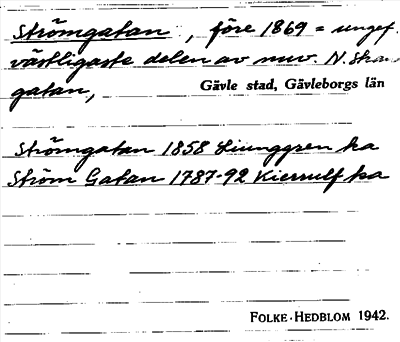 Strömgatan, före 1869 = ungef.
västligaste delen av nuv. N. Strand
gatan,
Gävle stad, Gävleborgs län
Strömgatan 1858 Ljunggren ka
Ström Gatan 1787-92 Kierrulf ka
FOLKE HEDBLOM 1942.